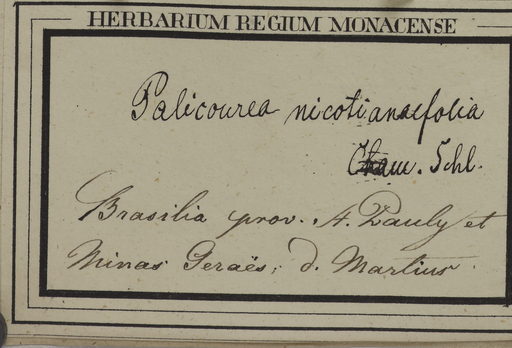 HERBARIUM REGIUM MONACENSE
Palicourea nicotianaefolia
Cham. Schl.
Brasilia prov. S. Pauly et
Minas Geraës; d. Martius